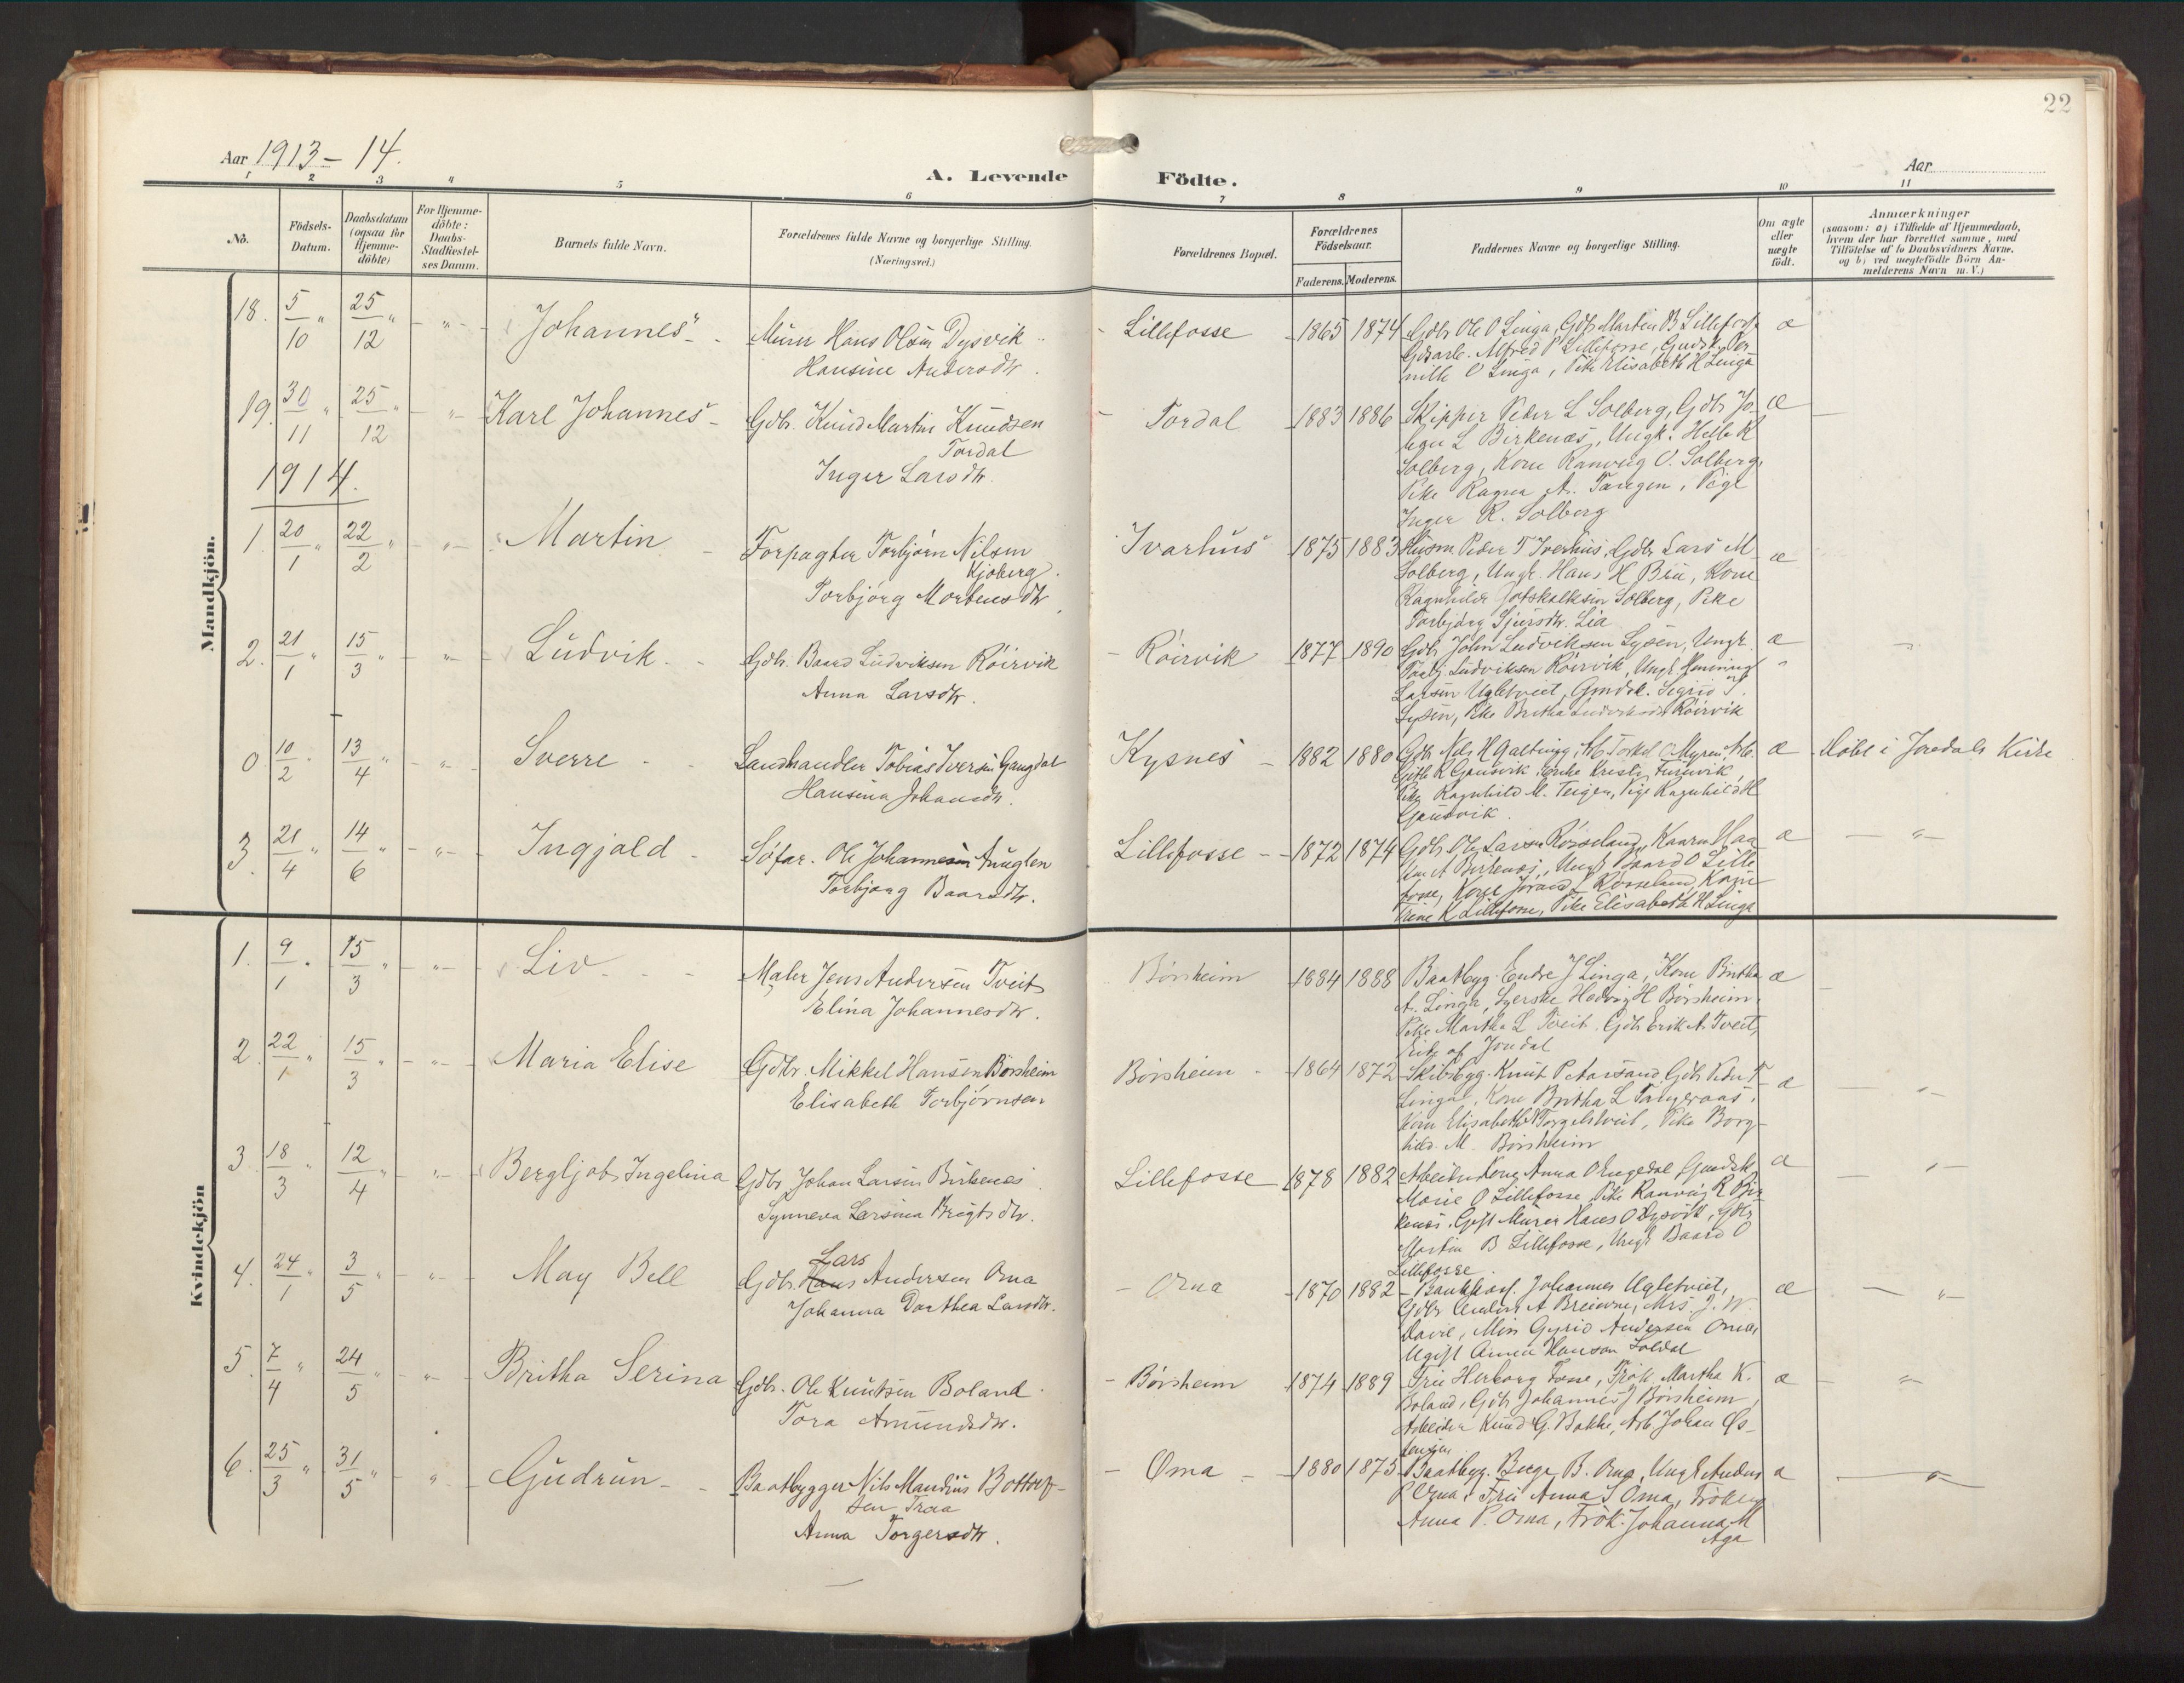 22
Aar 1913 - 14.
Aar
A. Levende Födte.
1 2 3 4 5 6 7 8 9 10 11
No.
Födsels-Datum.
Daabsdatum (ogsaa for Hjemme-döbte)
For Hjemme-döbte: Daabs-Stadfæstel-ses Datum.
Barnets fulde Navn.
Forældrenes fulde Navne og borgerlige Stilling. (Næringsvei.)
Forældrenes Bopæl.
Forældrenes Födselsaar.
Faderens. Moderens.
Faddernes Navne og borgerlige Stilling.
Om ægte eller uægte födt.
Anmærkninger
(saasom: a) i Tilfælde af Hjemmedaab,
hvem der har forrettet samme, med
Tilföielse af to Daabsvidners Navne.
og b) ved uægtefödte Börn An-
melderens Navn m. V.)
Mandkjön.
18. 5/10 " 25/12 " - " - Johannes - Murer Hans Olsen Dysvik
Hansine Andersdtr.
- Lillefosse - 1865 1874 Gdbr Ole O Linga, Gdb. Martin B Lillefosse
Gdrarb. Alfred P Lillefosse, Gmdsk. Per-
nille O Linga, Pike Elisabeth H Linga
æ
19. 30/11 " 25/12 " - " - Karl Johannes - Gdbr. Knud Martin Knudsen
Tordal
Inger Larsdtr.
- Tordal - 1883 1886 Skipper Peder L Solberg, Gdbr Jo-
han L Birkenæs, Ungk. Helle K
Solberg, Kone Ranveig O. Solberg,
Pike Ragna A. Tangen, Pige
Inger R. Solberg
æ
1914.
1. 20/1 " 22/2 " - " - Martin - Forpagter Torbjörn Nilsen
Kjoberg.
Torbjörg Mortensdtr.
Ivarhus - 1875 1883 Husm. Peder T Iverhus, Gdbr Lars M
Solberg, Ungk. Hans H Bru, Kone
Ragnhilda Gotskalksen Solberg, Pike
Torbjörg Sjursdtr. Lia
æ
2. 21/1 " 15/3 " - " - Ludvik - Gdbr. Baard Ludviksen Röirvik
Anna Larsdtr.
- Röirvik - 1877 1890 Gdb. John Ludviksen Lysen, Ungk.
Ludviksen Röirvik, Ungk. Henning
Larsen Ugletveit, Gmdsk. Sigrid T.
Lysen, Pike Britha Ludviksdtr Röirvik
æ
0 10/2 " 13/4 " - " - Sverre - Landhandler Tobias Iversen Gangdal
Hansina Johansdtr.
Kysnes - 1882 1880 Gdb. Nils H Galtung, Arb Torkel O Myren, Arb.
Gitle K Gausvik, Enke Kristi Furuvik,
Pike Ragnhild M. Teigen, Pige Ragnhild H
Gausvik.
æ Döbt i Jondals Kirke
3. 21/4 " 14/6 " - " - Ingjald - Söfar. Ole Johannesen Auglen
Torbjörg Baarsdtr.
Lillefosse - 1872 1874 Gdb. Ole Larsen Rosseland, Kaarn Haa-
kon A Birkenæs, Ungk Baard O Lille-
fosse, Kone Jorand L Rosseland, Kone
Trine K Lillefosse, Pike Elisabeth H Linga
æ - " -
Kvindekjön
1. 9/1 " 15/3 " - " - Liv - Maler Jens Andersen Tveit
Elina Johannesdtr.
Börsheim 1884 1888 Baatbyg. Endre J Linga, Kone Britha
A. Linga, Syerske Hedvig H Börsheim.
Pike Martha L Tveit. Gdb. Erik A Tveit,
af Jondal
æ
2. 22/1 " 15/3 " - " - Maria Elise Gdbr. Mikkel Hansen Börsheim
Elisabeth Torbjörnsen
Börsheim - 1864 1872 Skibsbyg. Knut P Aarsand, Gdb. Peder T
Linga, Kone Britha L Tangeraas,
Kone Elisabeth N Torgelstveit, Pike Borg-
hild M Börsheim
æ - " -
3 18/3 " 12/4 " - " - Bergljot Ingelina Gdbr. Johan Larsen Birkenæs
Synneva Larsina Brigtsdtr.
Lillefosse 1878 1882 Arbeider Kone Anna O Engedal Gmdsk
Marie O Lillefosse, Pike Ranveig R Bir-
kenæs. Gift Murer Hans O Dysvik, Gdbr
Martin B Lillefosse, Ungk Baard O
Lillefosse
æ - " -
4. 24/1 " 3/5 " - " - May Bell Gdbr. Lars Andersen Oma
Johanna Dorthea Larsdtr.
- Oma - 1870 1882 - Bankkass. Johannes Ugletveit,
Gdbr Anders A Breievne, Mrs. J. W.
Davie, Miss Gyrid Andersen Oma,
Ugift Anna Hanson Soldal
æ - " -
5. 7/4 " 24/5 " - " - Britha Serina Gdbr. Ole Knutsen Boland
Tora Amundsdtr.
- Börsheim - 1874 1889 Fru Herborg Fosse, Frök. Martha K.
Boland, Gdb Johannes J Börsheim,
Arbeider Knud G. Bakke, Arb Johan Øs-
tensen
æ - " -
6. 25/3 " 31/5 " - " Gudrun - Baatbygger Nils Mandius Bottolf-
sen Traa
Anna Torgersdtr.
- Oma - 1880 1875 Baatbyg. Børge B. Oma, Ungk Anders
P Oma, Fru Anna S Oma, Fröken
Anna P. Oma, Frök. Johanna M
Aga
æ - " -